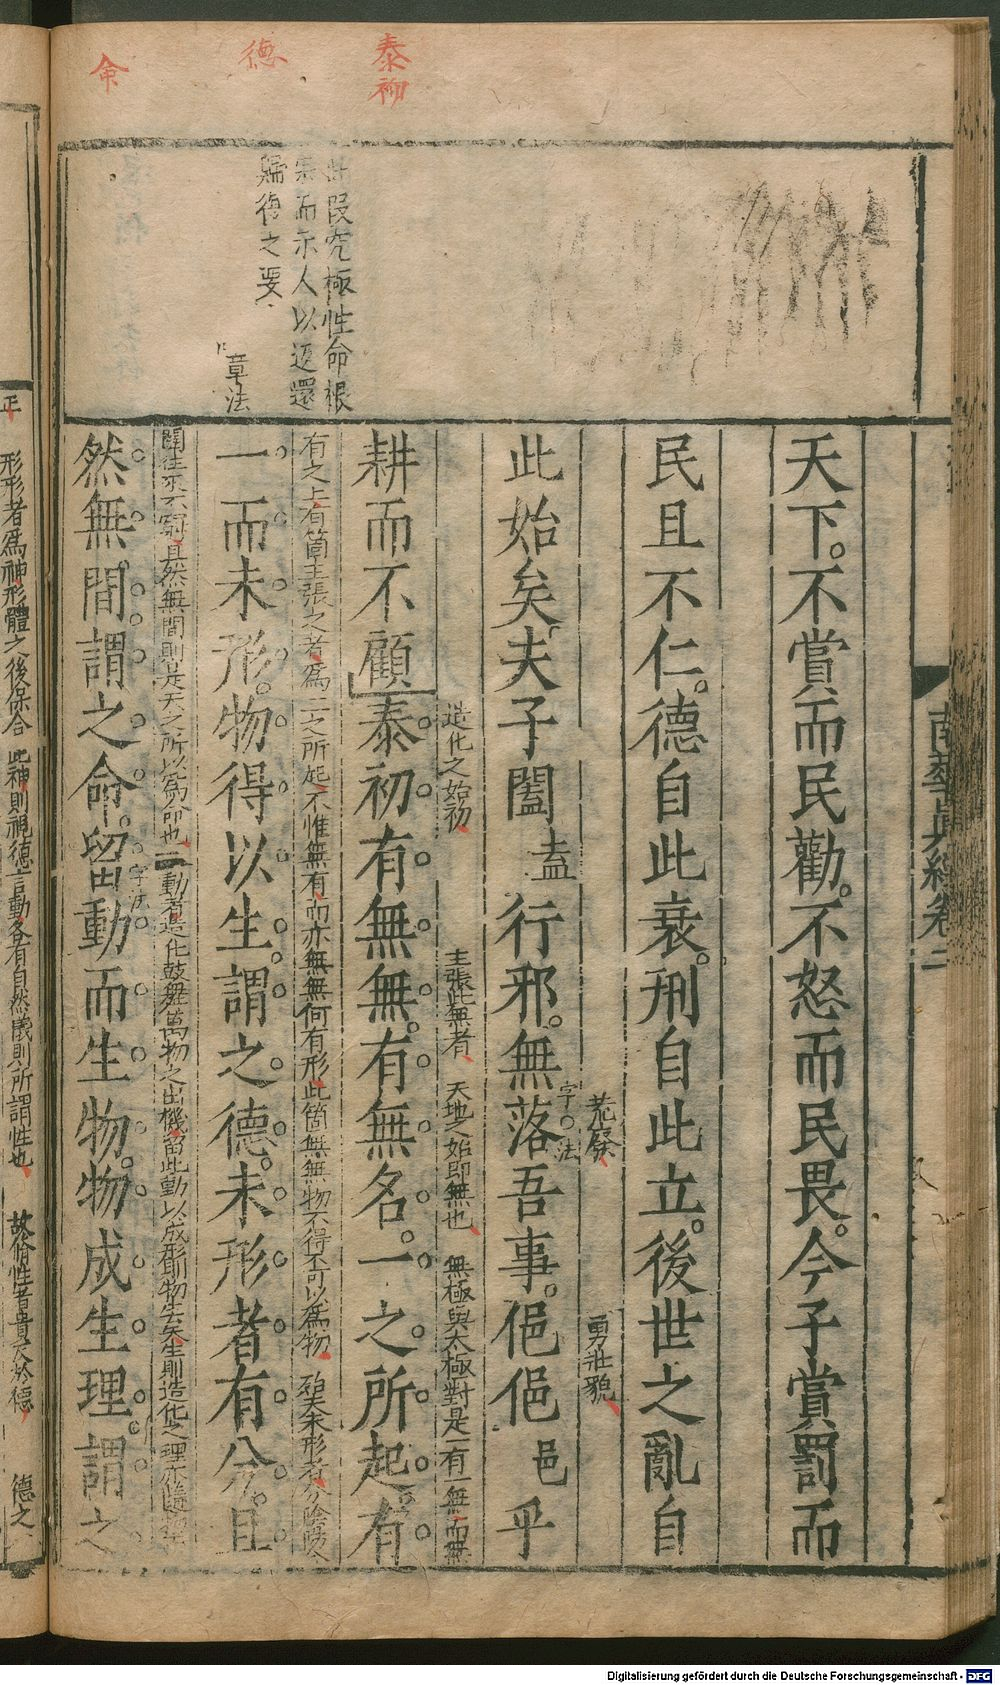 泰初
德
命
此段究極性命根
宗而示人以返還
歸復之要
章法
南華眞經卷二
天下不賞而民勸不怒而民畏今子賞罰而
民且不仁德自此衰刑自此立後世之亂自
荒廢
勇壯貌
此始矣夫子闔盍行邪無落吾事俋俋邑乎
字法
造化之始初
主張此無者
天地之始即無也
無極與太極對是一有一無而無
耕而不顧泰初有無無有無名一之所起有
有之上有箇主張之者爲一之所起不惟無有而亦無無何有形此箇無無物不得不可以爲物
未形者分陰陽
一而未形物得以生謂之德未形者有分且
闔往來不窮且然無間則是天之所以爲命也
動者造化鼓舞萬物之出機留此動以成形則物生矣生則造化之理亦
然無間謂之命留動而生物物成生理謂之
字法
形形者爲神形體之後保合
此神則視聽言動各有自然儀則所謂性也
故脩性者貴反於德
德之
Digitalisierung gefördert durch die Deutsche Forschungsgemeinschaft - DFG